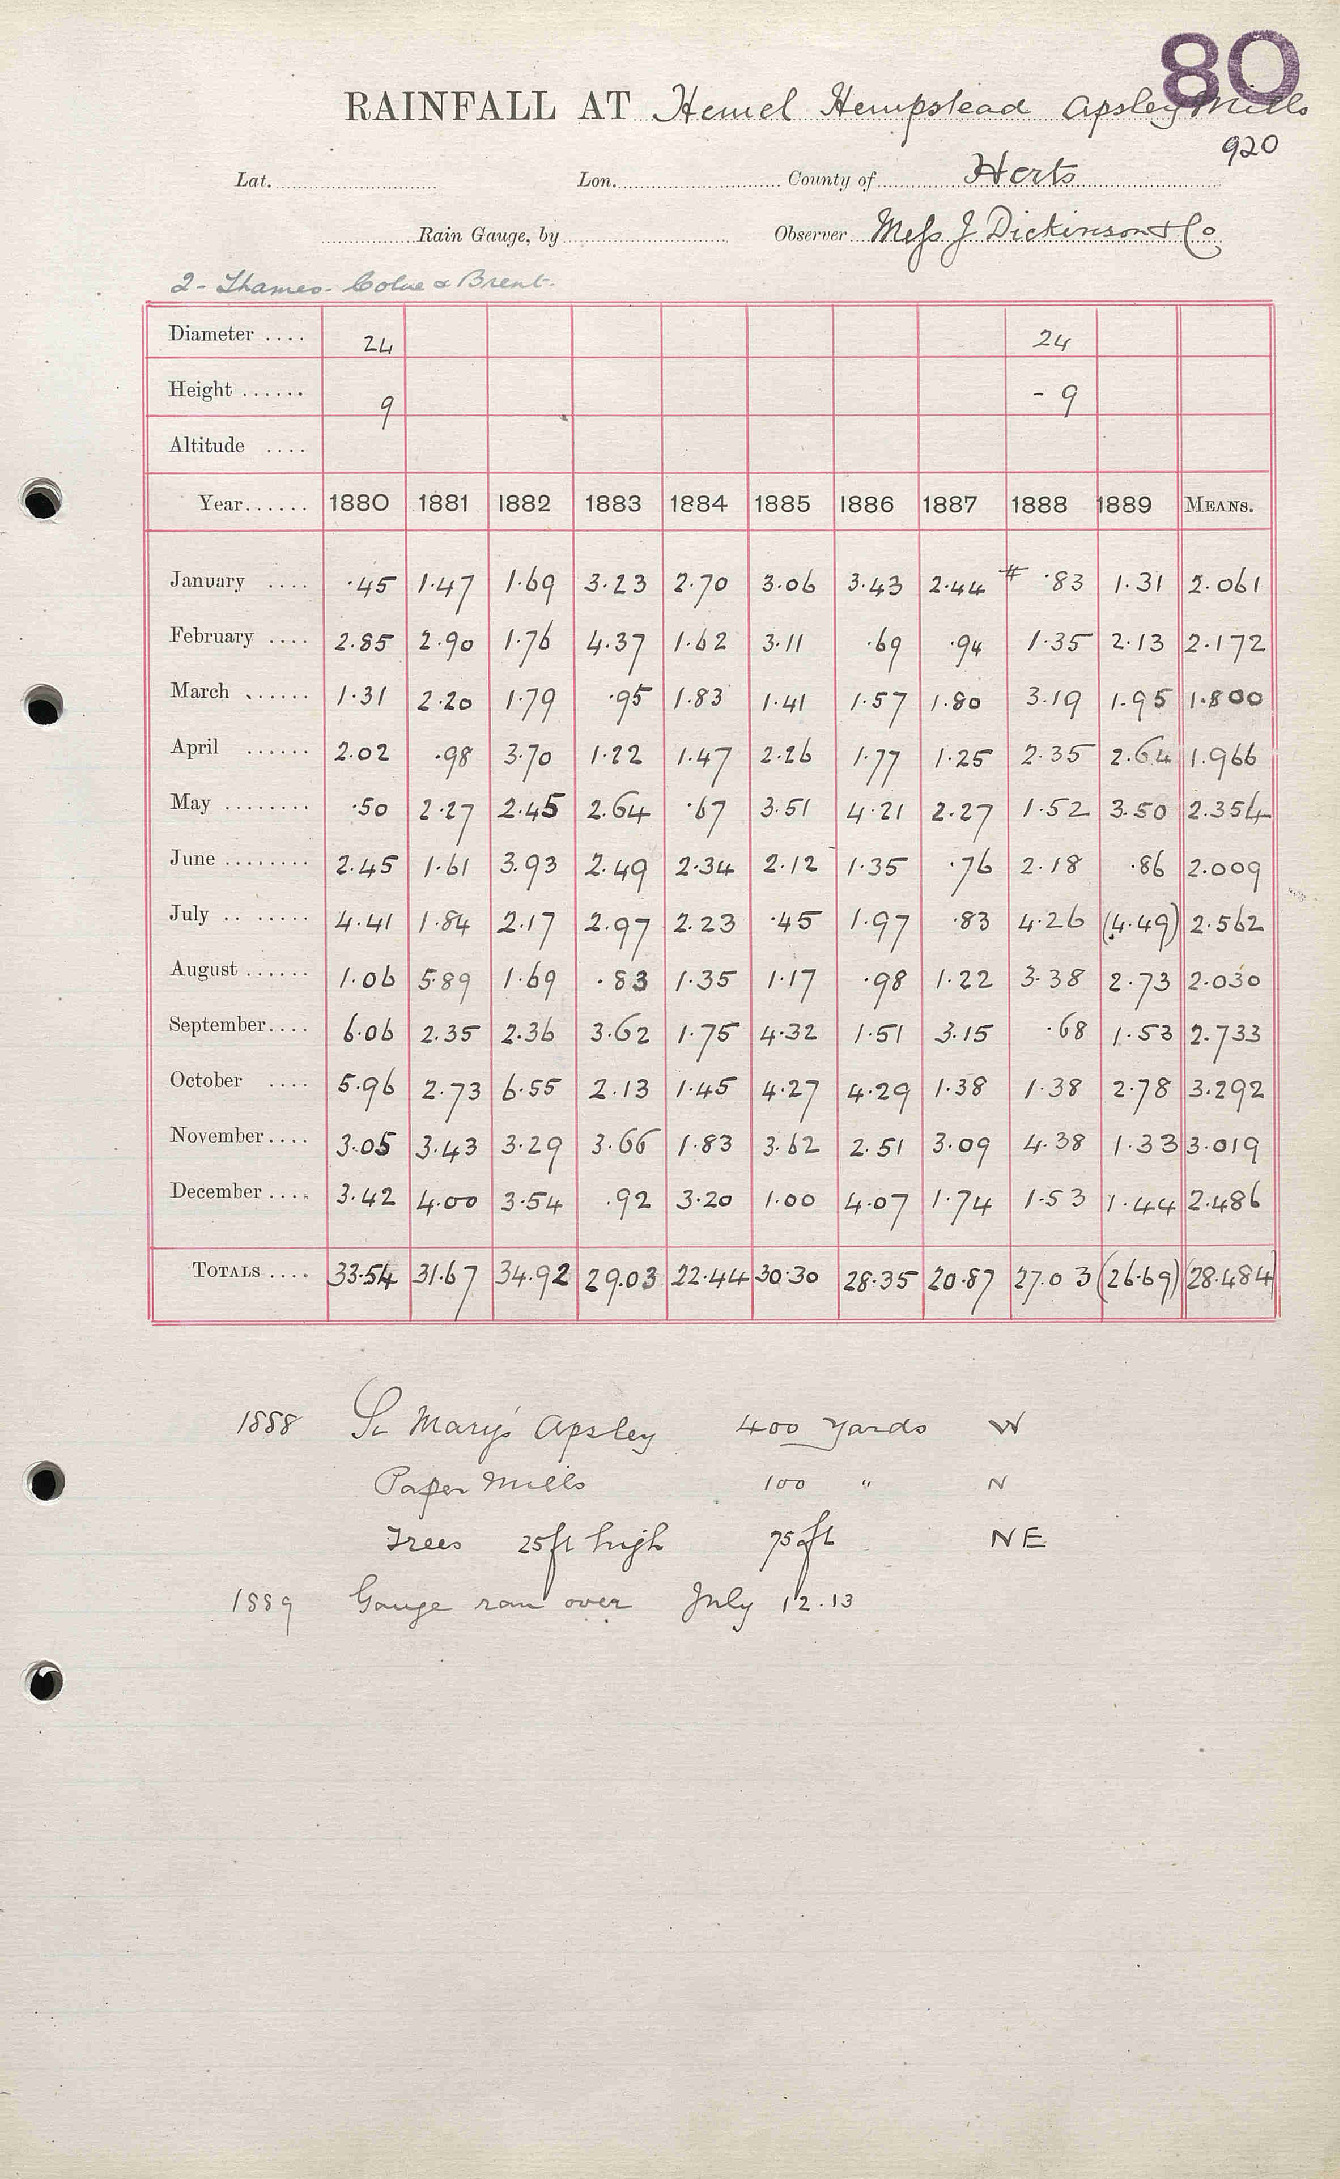 80
RAINFALL AT Hemel Hempstead Apsley Mills
920
Lat. Lon. County of Herts
Rain Gauge, by Observer Mess J Dickinson & Co
2 - Thames - Colne & Brent.
Diameter .... 24 24
Height ...... 9 - 9
Altitude ....
Year...... 1880 1881 1882 1883 1884 1885 1886 1887 1888 1889 MEANS.
January .... ·45 1·47 1·69 3·23 2·70 3·06 3·43 2·44 # ·83 1·31 2·061
February .... 2·85 2·90 1·76 4·37 1·62 3·11 ·69 ·94 1·35 2·13 2·172
March ...... 1·31 2·20 1·79 ·95 1·83 1·41 1·57 1·80 3·19 1·95 1·800
April ...... 2·02 ·98 3·70 1·22 1·47 2·26 1·77 1·25 2·35 2·64 1·966
May ........ ·50 2·27 2·45 2·64 ·67 3·51 4·21 2·27 1·52 3·50 2·354
June ........ 2·45 1·61 3·93 2·49 2·34 2·12 1·35 ·76 2·18 ·86 2·009
July .. ..... 4·41 1·84 2·17 2·97 2·23 ·45 1·97 ·83 4·26 (4·49) 2·562
August ...... 1·06 5·89 1·69 ·83 1·35 1·17 ·98 1·22 3·38 2·73 2·030
September.... 6·06 2·35 2·36 3·62 1·75 4·32 1·51 3·15 ·68 1·53 2·733
October .... 5·96 2·73 6·55 2·13 1·45 4·27 4·29 1·38 1·38 2·78 3·292
November.... 3·05 3·43 3·29 3·66 1·83 3·62 2·51 3·09 4·38 1·33 3·019
December .... 3·42 4·00 3·54 ·92 3·20 1·00 4·07 1·74 1·53 1·44 2·486
TOTALS .... 33·54 31·67 34·92 29·03 22·44 30·30 28·35 20·87 27·03 (26·69) (28·484)
1888 St Mary's Apsley 400 yards W
Paper Mills 100 " N
Trees 25ft high 75ft NE
1889 Gauge ran over July 12.13